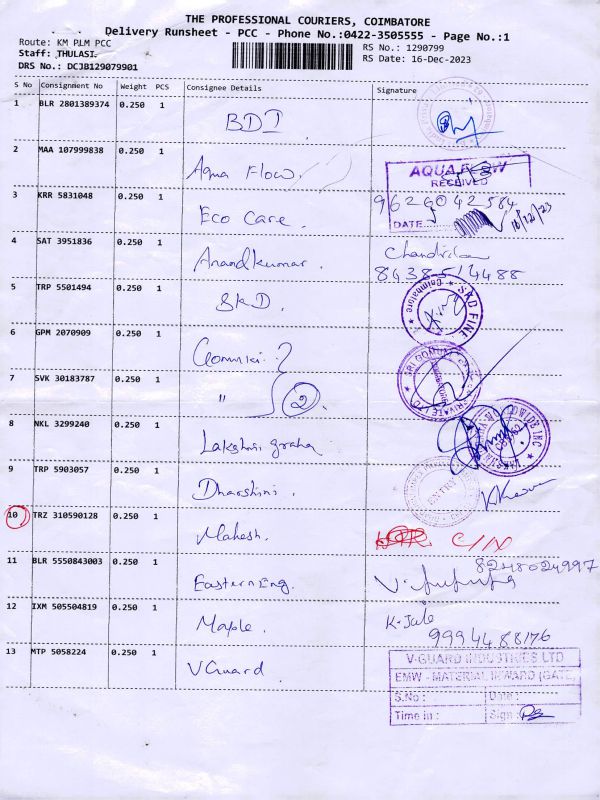 THE PROFESSIONAL COURIERS, COIMBATORE
Delivery Runsheet - PCC - Phone No.:0422-3505555 - Page No.:1
Route: KM PLM PCC
Staff: THULASI
DRS No.: DCJB129079901
RS No.: 1290799
RS Date: 16-Dec-2023
S No Consignment No Weight PCS Consignee Details Signature
1 BLR 2801389374 0.250 1 BDI
2 MAA 107999838 0.250 1 Aqua Flow.
AQUA FLOW
RECEIVED
3 KRR 5831048 0.250 1 Eco Care.
9629042584
DATE 16/12/23
4 SAT 3951836 0.250 1 Anandkumar.
8438514488
5 TRP 5501494 0.250 1 SKD.
SKD FINE * Coimbatore *
6 GPM 2070909 0.250 1
7 SVK 30183787 0.250 1 " 2
8 NKL 3299240 0.250 1 Lakshmi graha
9 TRP 5903057 0.250 1 Dharshini.
ENTRY
10 TRZ 310590128 0.250 1 Mahesh. C/N
11 BLR 5550843003 0.250 1 Eastern Eng.
8248024997
12 IXM 505504819 0.250 1 Maple.
9994488176
13 MTP 5058224 0.250 1 VGuard
V-GUARD INDUSTRIES LTD
EMW - MATERIAL INWARD (GATE)
S.No : Date :
Time in : Sign :